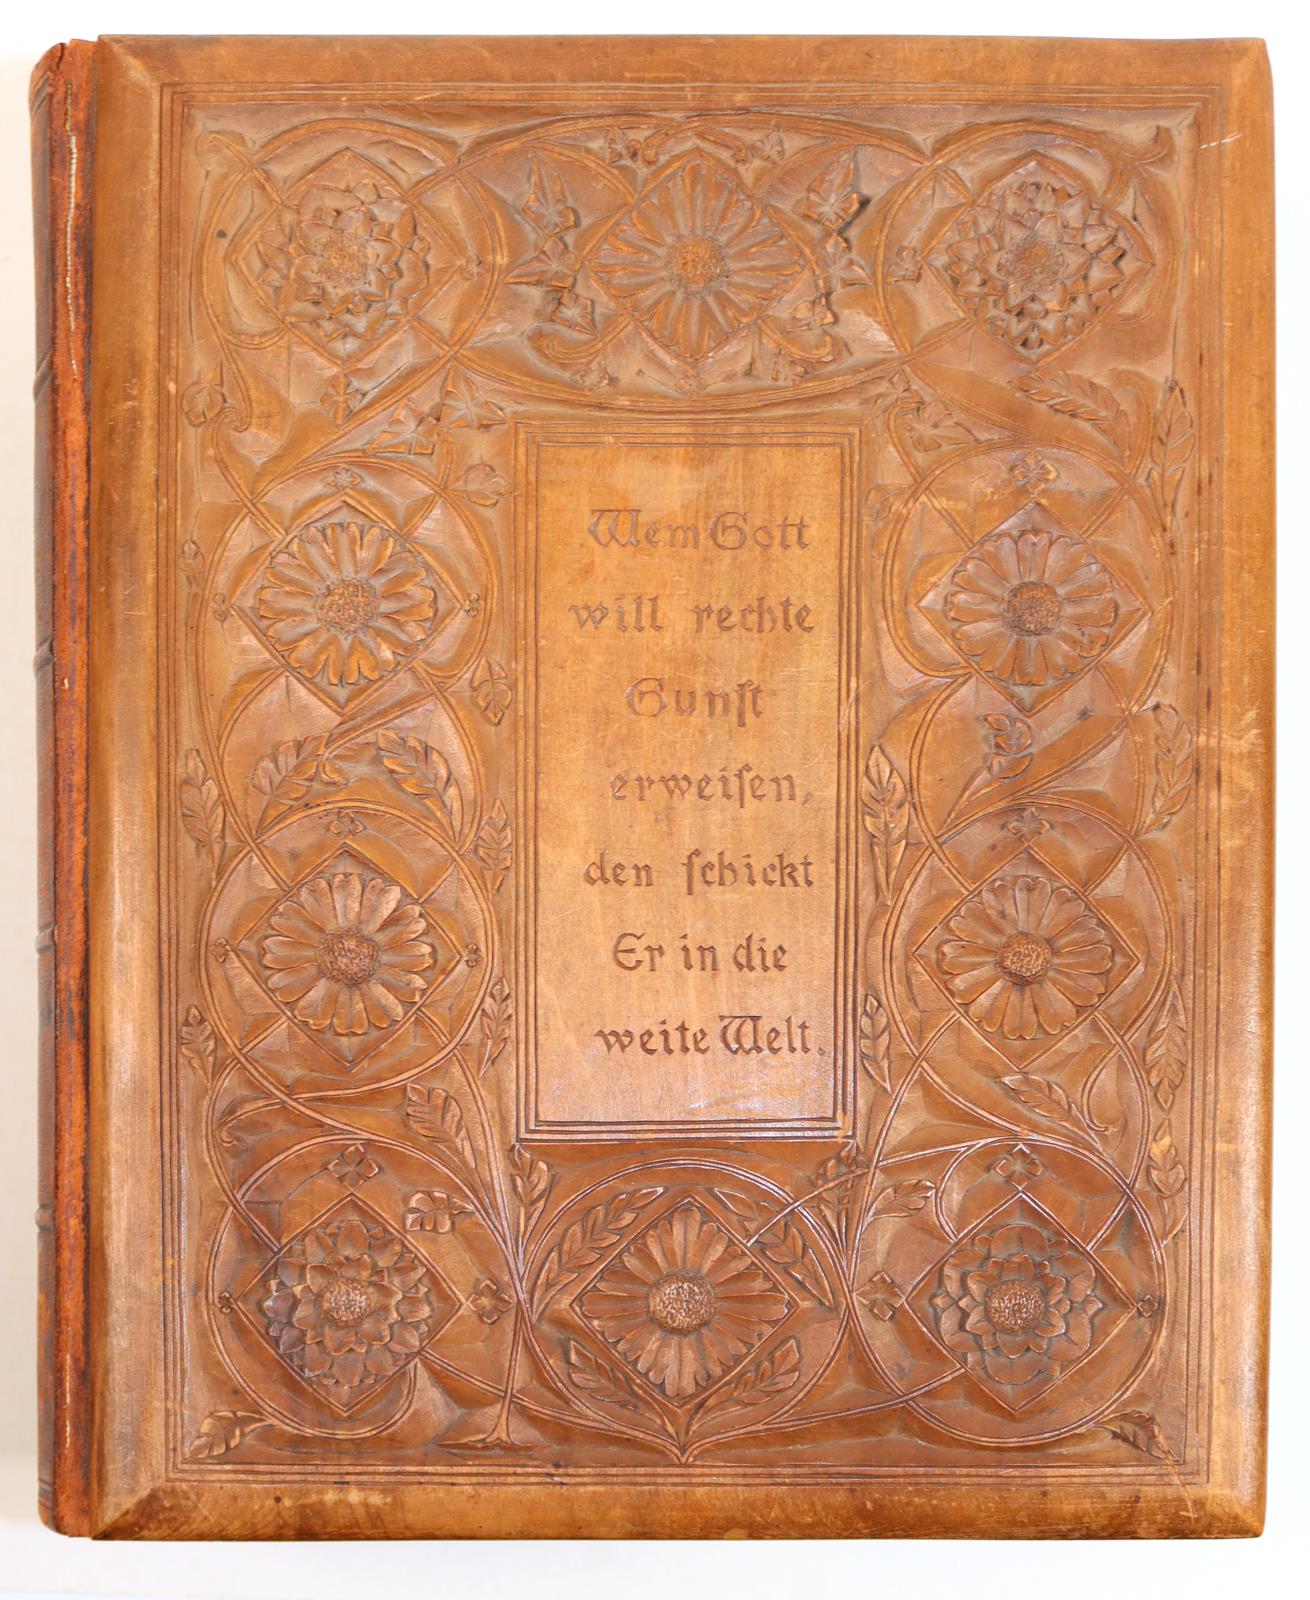 Wem Gott
will rechte
Gunſt
erweiſen,
den ſchickt
Er in die
weite Welt.